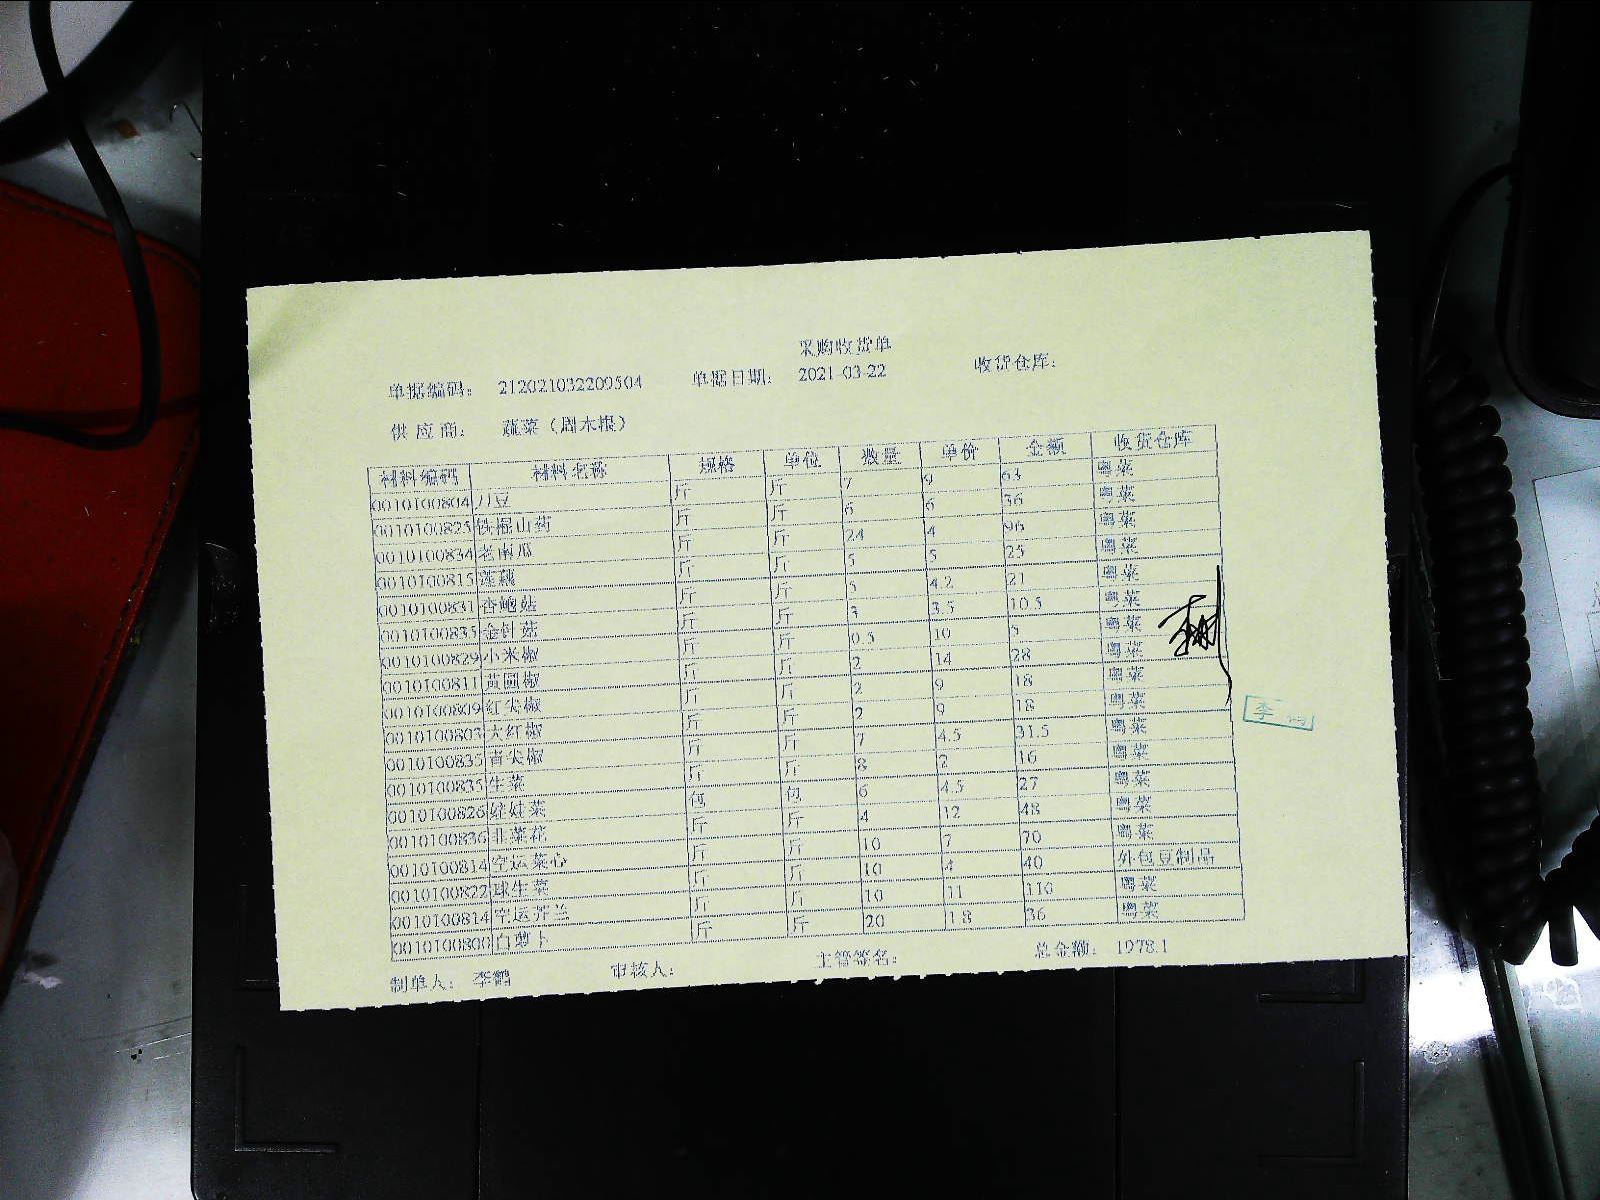 采购收货单
单据编码： 212021032209504 单据日期： 2021-03-22 收货仓库：
供应商： 蔬菜（周木根）
材料编码 材料名称 规格 单位 数量 单价 金额 收货仓库
0010100804 刀豆 斤 斤 7 9 63 粤菜
0010100825 铁棍山药 斤 斤 6 6 36 粤菜
0010100834 老南瓜 斤 斤 24 4 96 粤菜
0010100815 莲藕 斤 斤 5 5 25 粤菜
0010100831 杏鲍菇 斤 斤 5 4.2 21 粤菜
0010100835 金针菇 斤 斤 3 3.5 10.5 粤菜
0010100829 小米椒 斤 斤 0.5 10 5 粤菜
0010100811 黄圆椒 斤 斤 2 14 28 粤菜
0010100809 红尖椒 斤 斤 2 9 18 粤菜
0010100803 大红椒 斤 斤 2 9 18 粤菜
0010100835 青尖椒 斤 斤 7 4.5 31.5 粤菜
0010100835 生菜 斤 斤 8 2 16 粤菜
0010100826 娃娃菜 包 包 6 4.5 27 粤菜
0010100836 韭菜花 斤 斤 4 12 48 粤菜
0010100814 空运菜心 斤 斤 10 7 70 粤菜
0010100822 球生菜 斤 斤 10 4 40 外包豆制品
0010100814 空运芥兰 斤 斤 10 11 110 粤菜
0010100800 白萝卜 斤 斤 20 1.8 36 粤菜
制单人： 李鹤 审核人： 主管签名： 总金额： 1978.1
李